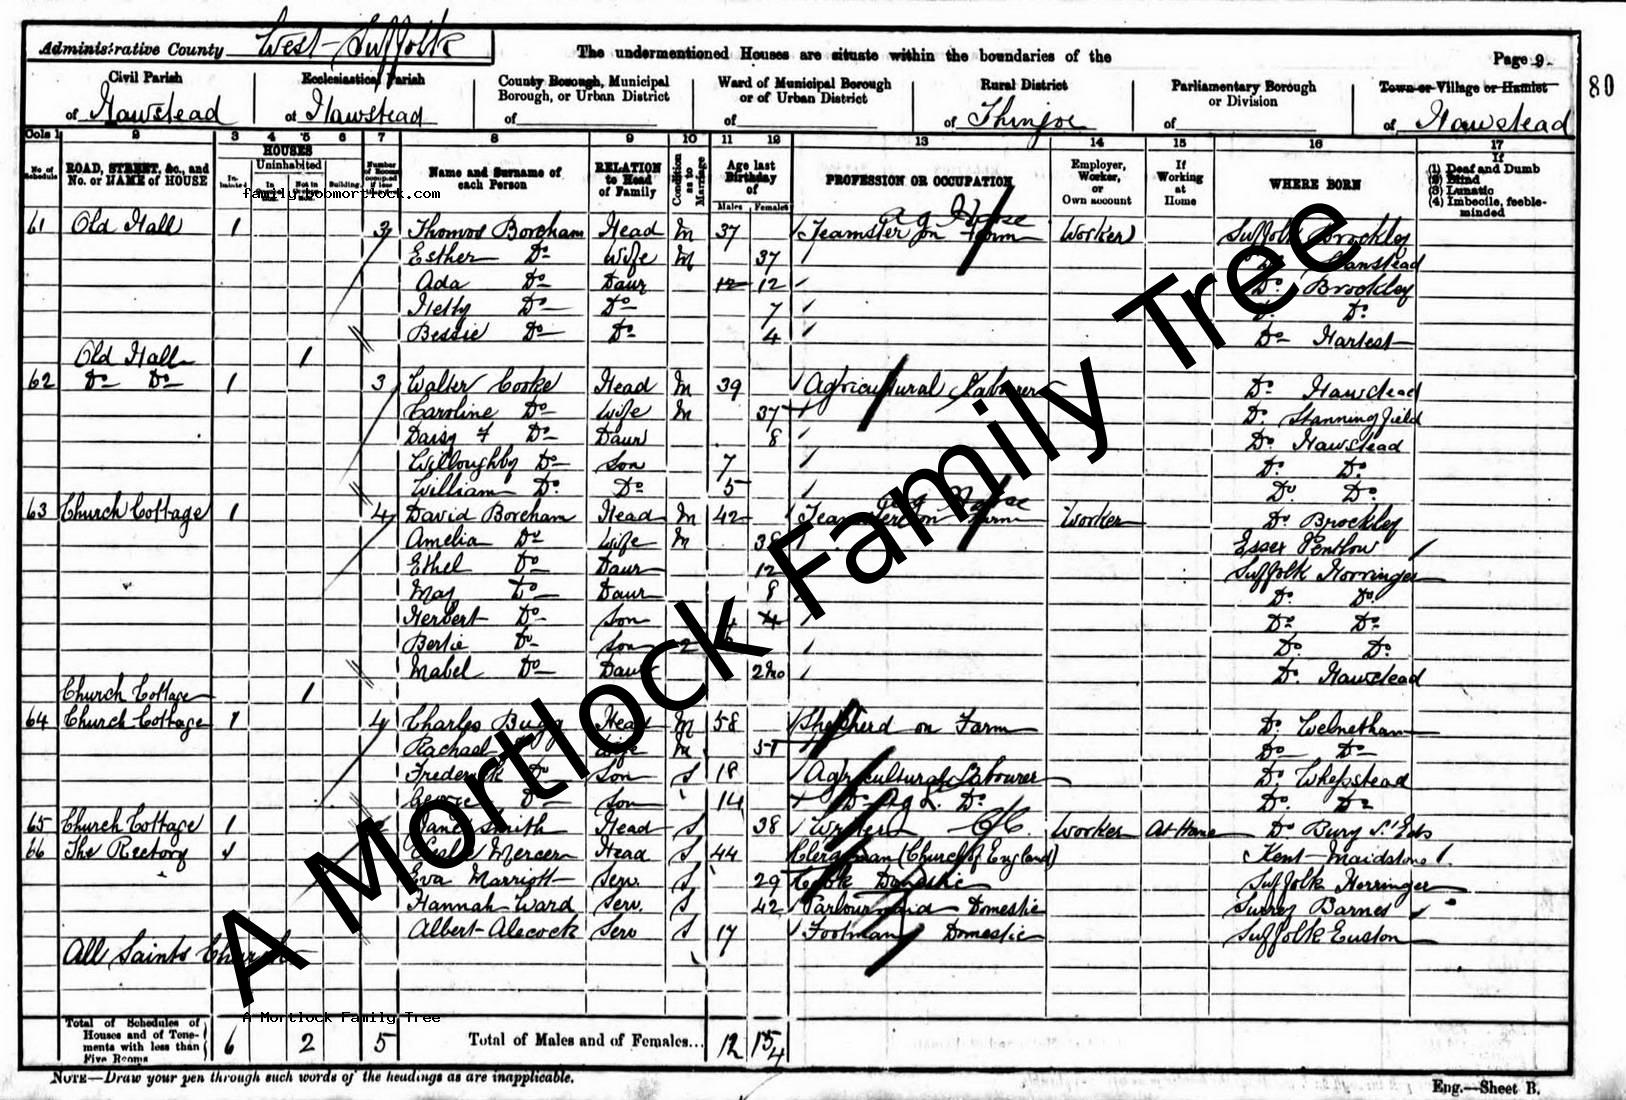 Administrative County West Suffolk
The undermentioned Houses are situate within the boundaries of the
Page 9
80
Civil Parish of Hawstead
Ecclesiastical Parish of Hawstead
County Borough, Municipal Borough, or Urban District of
Ward of Municipal Borough or of Urban District of
Rural District of Thingoe
Parliamentary Borough or Division of
Town or Village or Hamlet of Hawstead
Cols 1 2 3 4 5 6 7 8 9 10 11 12 13 14 15 16 17
No. of Schedule
ROAD, STREET, &c., and No. or NAME of HOUSE
HOUSES
Inhabited
Uninhabited
Building
Name and Surname of each Person
RELATION to Head of Family
Condition as to Marriage
Age last Birthday of
Males Females
PROFESSION OR OCCUPATION
Employer, Worker, or Own account
If Working at Home
WHERE BORN
If (1) Deaf and Dumb (2) Blind (3) Lunatic (4) Imbecile, feeble-minded
family.robmortlock.com
Ag Horse
61 Old Hall 1 3 Thomas Boreham Head M 37 Teamster on Farm Worker Suffolk Brockley
Esther Do Wife M 37 Do Hanstead
Ada Do Daur 12 12 Do Brockley
Hetty Do Do 7 Do Do
Bessie Do Do 4 Do Hartest
Old Hall 1
62 Do Do 1 3 Walter Cooke Head M 39 Agricultural Labourer Do Hawstead
Caroline Do Wife M 37 Do Stanningfield
Daisy F Do Daur 8 Do Hawstead
Willoughby Do Son 7 Do Do
William Do Do 5 Do Do
Ag Horse
63 Church Cottage 1 4 David Boreham Head M 42 Teamster on Farm Worker Do Brockley
Amelia Do Wife M 38 Essex Pentlow
Ethel Do Daur 12 Suffolk Horringer
May Do Daur 8 Do Do
Herbert Do Son 4 4 Do Do
Bertie Do Son 2 Do Do
Mabel Do Daur 2 Mo Do Hawstead
Church Cottage 1
64 Church Cottage 1 4 Charles Bugg Head M 58 Shepherd on Farm Do Welnetham
Rachael Wife M 51 Do Do
Frederick Do Son S 18 Agricultural Labourer Do Whepstead
George Do Son 14 Do Ag L. Do Do Do
65 Church Cottage 1 2 Jane Smith Head S 38 Worker At Home Do Bury St Eds
66 The Rectory 1 Leslie Mercer Head S 44 Clergyman (Church of England) Kent Maidstone
Eva Marriott Serv. S 29 Cook Domestic Suffolk Horringer
Hannah Ward Serv. S 42 Parlourmaid Domestic Surrey Barnes
Albert Alecock Serv S 17 Footman Domestic Suffolk Euston
All Saints Church
A Mortlock Family Tree
A Mortlock Family Tree
Total of Schedules of Houses and of Tenements with less than Five Rooms 6 2 5 Total of Males and of Females... 12 15
4
NOTE—Draw your pen through such words of the headings as are inapplicable.
Eng.—Sheet B.